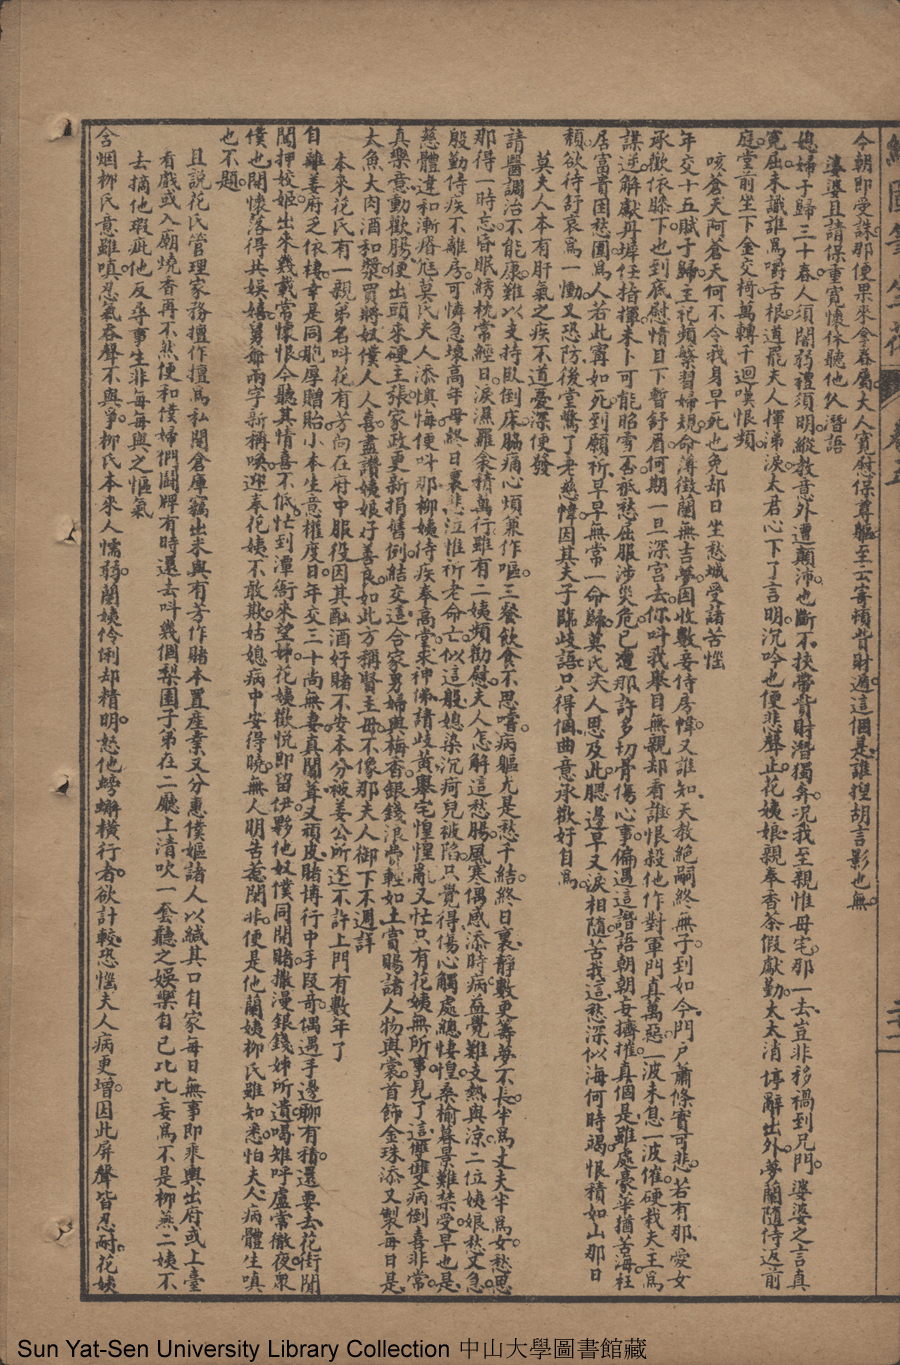 今朝即受誅那便果來拿眷屬夫人寬慰保尊軀至云寄頓背財適這個是誰捏胡言影也無
婆婆且請保重寬懷休聽他久潛語
媳婦于歸三十春人須闇弱禮須明縱教意外遭顛沛也斷不挾帶背財潛獨奔况我至親惟母宅那一去豈非移禍到兄門婆婆之言真
寃屈未識誰爲嚼舌根道罷夫人揮涕淚太君心下了言明沉吟也便悲聲止花姨娘親奉香茶假獻勤太太消停辭出外夢蘭隨侍返前
庭堂前坐下金交椅萬轉千迴嘆恨頻
咳蒼天阿蒼天何不令我身早死也免却日坐愁城受諸苦惱
年交十五賦于歸主祀頻繁習婦規命薄徵蘭無吉夢因收數妾侍房幃又誰知天教絶嗣終無子到如今門戶蕭條實可悲若有那愛女
承歡依膝下也到底慰情目下暫舒眉何期一旦深宮去你叫我舉目無親却看誰恨殺他作對軍門真萬惡一波未息一波催硬栽夫主爲
謀逆解獻丹墀任指揮未卜可能昭雪否祇愁屈服涉災危已遭那許多切骨傷心事偏遇這譖語朝朝妄擠摧真個是雖處豪華猶苦海枉
居富貴困愁圍爲人若此寗如死到願祈早早無常一命歸莫氏夫人思及此腮邊早又淚相隨苦我這愁深似海何時竭恨積如山那日
頹欲待舒哀爲一慟又恐防後堂驚了老慈幃因其夫子臨歧語只得個曲意承歡好自爲
莫夫人本有肝氣之疾不道憂深便發
請醫調治不能康難以支持臥倒床腦痛心煩兼作嘔三餐飲食不思嚐病軀尤是愁千結終日裏靜數更籌夢不長半爲丈夫半爲女愁思
那得一時忘昏眠綉枕常經日淚濕羅衾積萬行雖有二姨頻勸慰夫人怎解這愁腸風寒偶感添時病益覺難支熱與凉二位姨娘愁又急
殷勤侍疾不離房可憐急壞高年母終日裏悲泣惟祈老命亡似這般媳染沉疴兒被陷只覺得傷心觸處總悽惶桑榆暮景難禁受早也是
慈體違和漸瘠尫莫氏夫人添懊悔便叫那柳姨侍疾奉高堂求神佛請歧黃舉宅惶惶亂又忙只有花姨無所事見了這雙雙病倒喜非常
真樂意動歡腸便出頭來硬主張家政更新捐舊例結交這合家男婦與梅香銀錢浪費輕如土賞賜諸人物與裳首飾金珠添又製每日是
太魚大肉酒和漿買將奴僕人人喜盡讚姨娘好善良如此方稱賢主母不像那夫人御下不週詳
本來花氏有一親弟名叫花有芳向在府中服役因其酗酒好賭不安本分被姜公所逐不許上門有數年了
自離姜府乏依棲幸是同胞厚贈貽小本生意權度日年交三十尚無妻真闒茸又頑皮賭博行中手段奇偶遇手邊聊有積還要去花街閒
闖押姣姬出來幾載常懷恨今聽其情喜不低忙到潭衙來望姊花姨歡悅即留伊夥他奴僕同開賭撒漫銀錢姊所遺喝雉呼盧常徹夜衆
僕也開懷落得共娛嬉舅爺兩字新稱喚迎奉花姨不敢欺姑媳病中安得曉無人明告惹閒非便是他蘭姨柳氏雖知悉怕夫人病體生嗔
也不題
且說花氏管理家務擅作擅爲私開倉庫竊出米與有芳作賭本置産業又分惠僕嫗諸人以緘其口自家每日無事即乘輿出府或上臺
看戲或入廟燒香再不然便和僕婦們鬪牌有時還去叫幾個梨園子弟在二廳上清吹一套聽之娛樂自己比比妄爲不是柳燕二姨不
去摘他瑕疵他反尋事生非每每與之慪氣
含烟柳氏意雖嗔忍氣吞聲不與爭柳氏本來人懦弱蘭姨伶俐却精明愁他螃蠏橫行者欲計較恐惱夫人病更增因此屏聲皆忍耐花姨
Sun Yat-Sen University Library Collection 中山大學圖書館藏